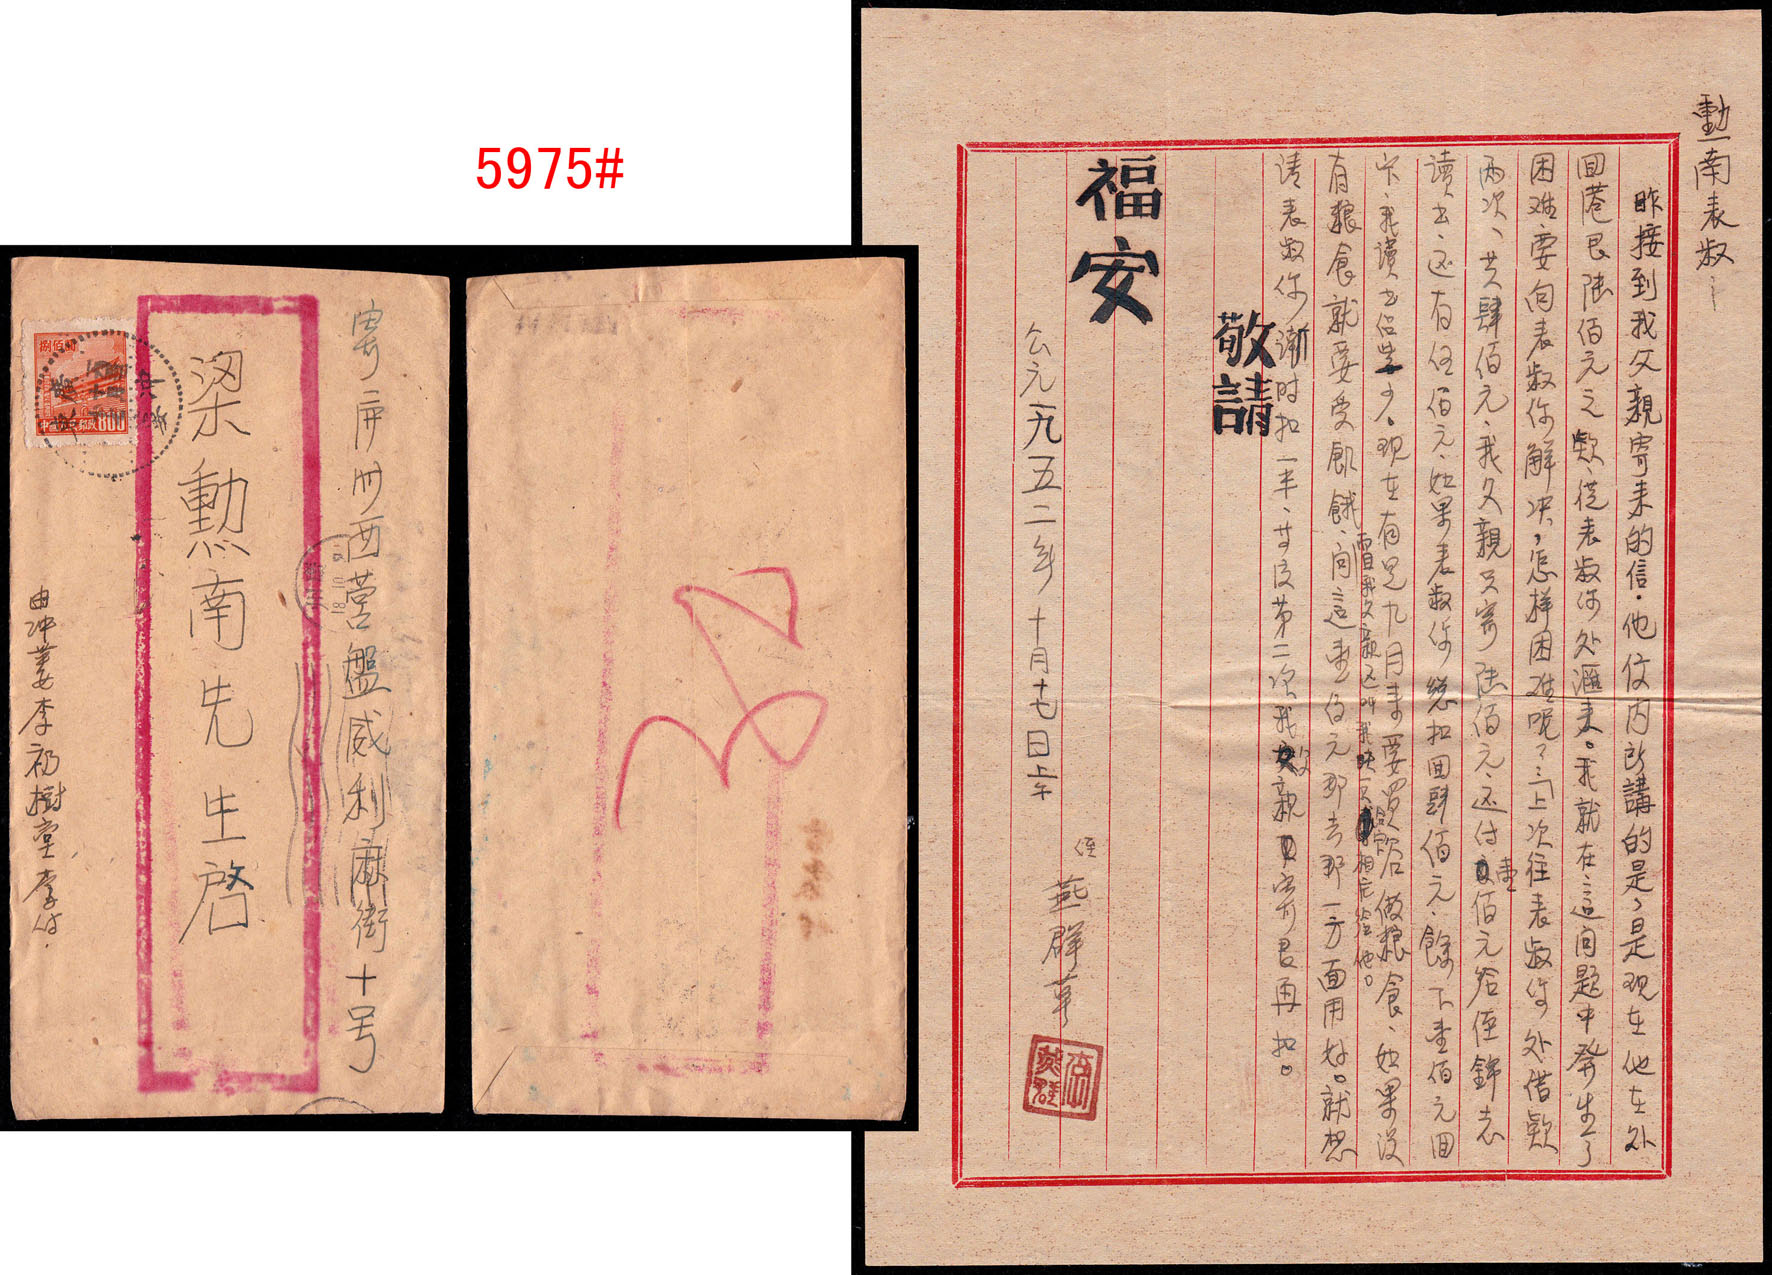 5975#
寄 州西营盤威利麻街十号
梁勳南先生啓
由冲蒌李初樹堂李付.
捌佰圆
800
勳南表叔:
昨接到我父親寄来的信.他仗内所講的是,是现在他在外
回港艮陆佰元之欵.從表叔你处滙来。我就在這问题中發生了
困难.要向表叔你解决,怎样困难呢?「上次往表叔你处借欵
两次、共肆佰元、我父親只寄陆佰元、还付壹佰元给侄錦志
讀书、还有伍佰元、如果表叔你 扣回肆佰元.餘下壹佰元回
我讀书 少.现在有是九月来要買谷做粮食、如果没
有粮食就要受飢餓.向這壹伯元那去那一方面用好。就想
请表叔你 时扣一半、 第二次我父親 寄艮再扣。
敬請
福安
侄 燕群 草
公元一九五二年十月十七日上午
李燕群